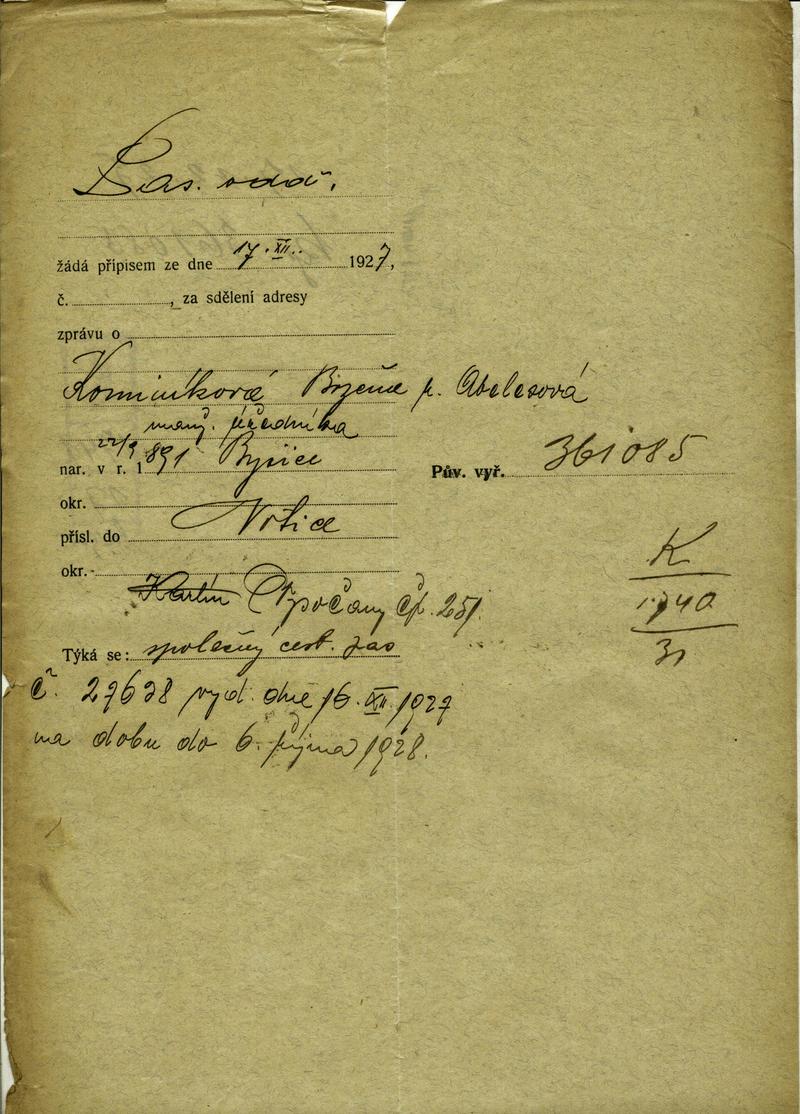 Pas. odd.
žádá přípisem ze dne 17. XII. 1927,
č. , za sdělení adresy
zprávu o
Kominíková Bižena r. Abelesová
manž. úředníka
nar. v r. 1891 22/9 Byšice
Pův. vyř. 361085
okr.
přísl. do Votice
okr.
Karlín Vysočany čp. 251
K
1740
31
Týká se: společný cest. pas
č. 27638 vyd. dne 16. XII. 1927
na dobu do 6. října 1928.